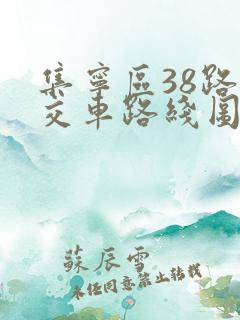 集寧區38路
交車路綫圖
蘇辰雪
未經同意禁止轉載